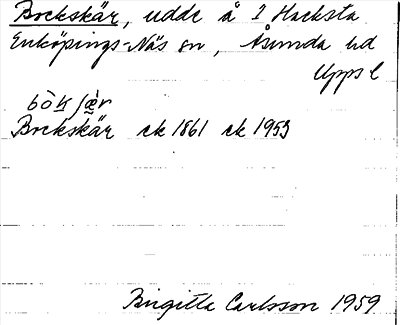 Bockskär, udde å I Hacksta
Enköpings-Näs sn, Åsunda hd
Upps l
Bockskär ek 1861 ek 1953
Birgitta Carlsson 1959